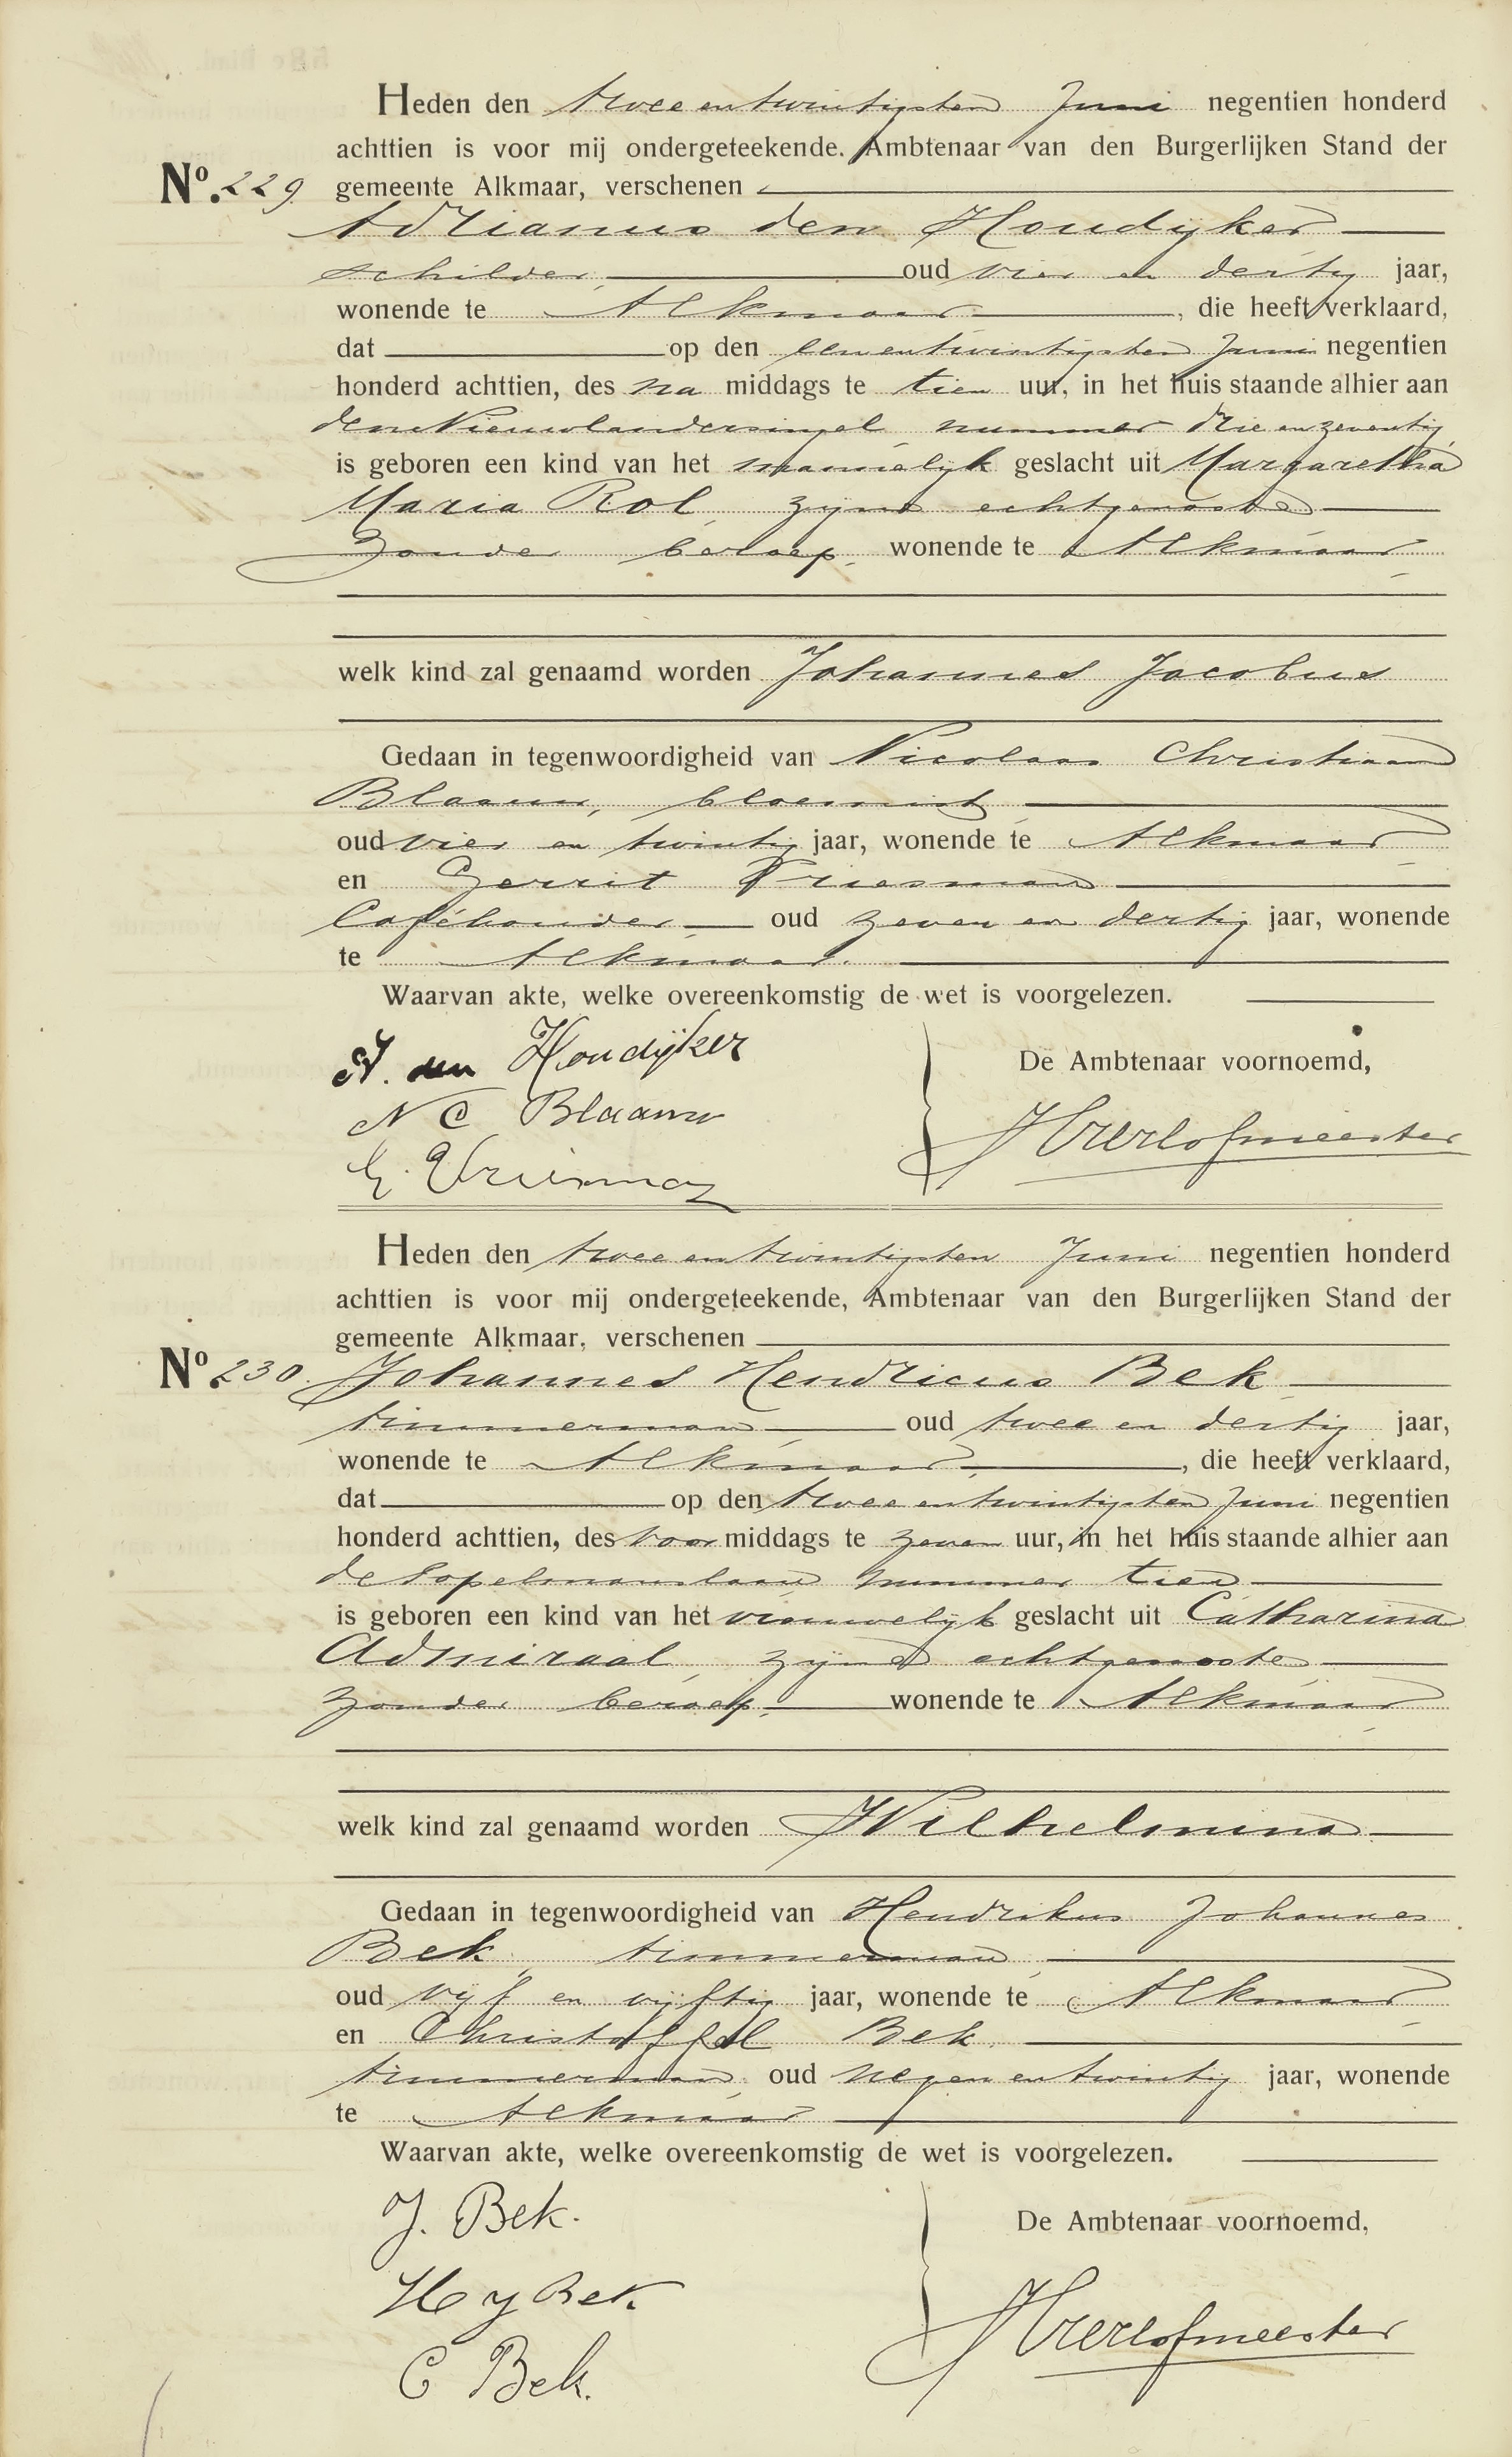 Heden den twee en twintigsten Juni negentien honderd
achttien is voor mij ondergeteekende. Ambtenaar van den Burgerlijken Stand der
No. 229. gemeente Alkmaar, verschenen
Adrianus den Houdijker
schilder, oud vier en dertig jaar,
wonende te Alkmaar, die heeft verklaard,
dat op den een en twintigsten Juni negentien
honderd achttien, des na middags te tien uur, in het huis staande alhier aan
den Nieuwlandersingel nummer drie en zeventig,
is geboren een kind van het mannelijk geslacht uit Margaretha
Maria Rol, zijne echtgenoote
zonder beroep, wonende te Alkmaar
welk kind zal genaamd worden Johannes Jacobus
Gedaan in tegenwoordigheid van Nicolaas Christiaan
Blaauw, bloemist
oud vier en twintig jaar, wonende te Alkmaar
en Gerrit Vriesman
Caféhouder oud zeven en dertig jaar, wonende
te Alkmaar.
Waarvan akte, welke overeenkomstig de wet is voorgelezen.
A. den Houdijker
De Ambtenaar voornoemd,
N C Blaauw
G. Vriesman
Heden den twee en twintigsten Juni negentien honderd
achttien is voor mij ondergeteekende, Ambtenaar van den Burgerlijken Stand der
gemeente Alkmaar, verschenen
No. 230. Johannes Hendricus Bek
timmerman, oud twee en dertig jaar,
wonende te Alkmaar, die heeft verklaard,
dat op den twee en twintigsten Juni negentien
honderd achttien, des voor middags te zeven uur, in het huis staande alhier aan
de Popelmanslaan nummer tien
is geboren een kind van het vrouwelijk geslacht uit Catharina
Admiraal, zijne echtgenoote
zonder beroep, wonende te Alkmaar
welk kind zal genaamd worden Wilhelmina
Gedaan in tegenwoordigheid van Hendrikus Johannes
Bek, timmerman
oud vijf en vijftig jaar, wonende te Alkmaar
en Christoffel Bek,
timmerman, oud negen en twintig jaar, wonende
te Alkmaar
Waarvan akte, welke overeenkomstig de wet is voorgelezen.
J. Bek.
De Ambtenaar voornoemd,
H J Bek.
C Bek.